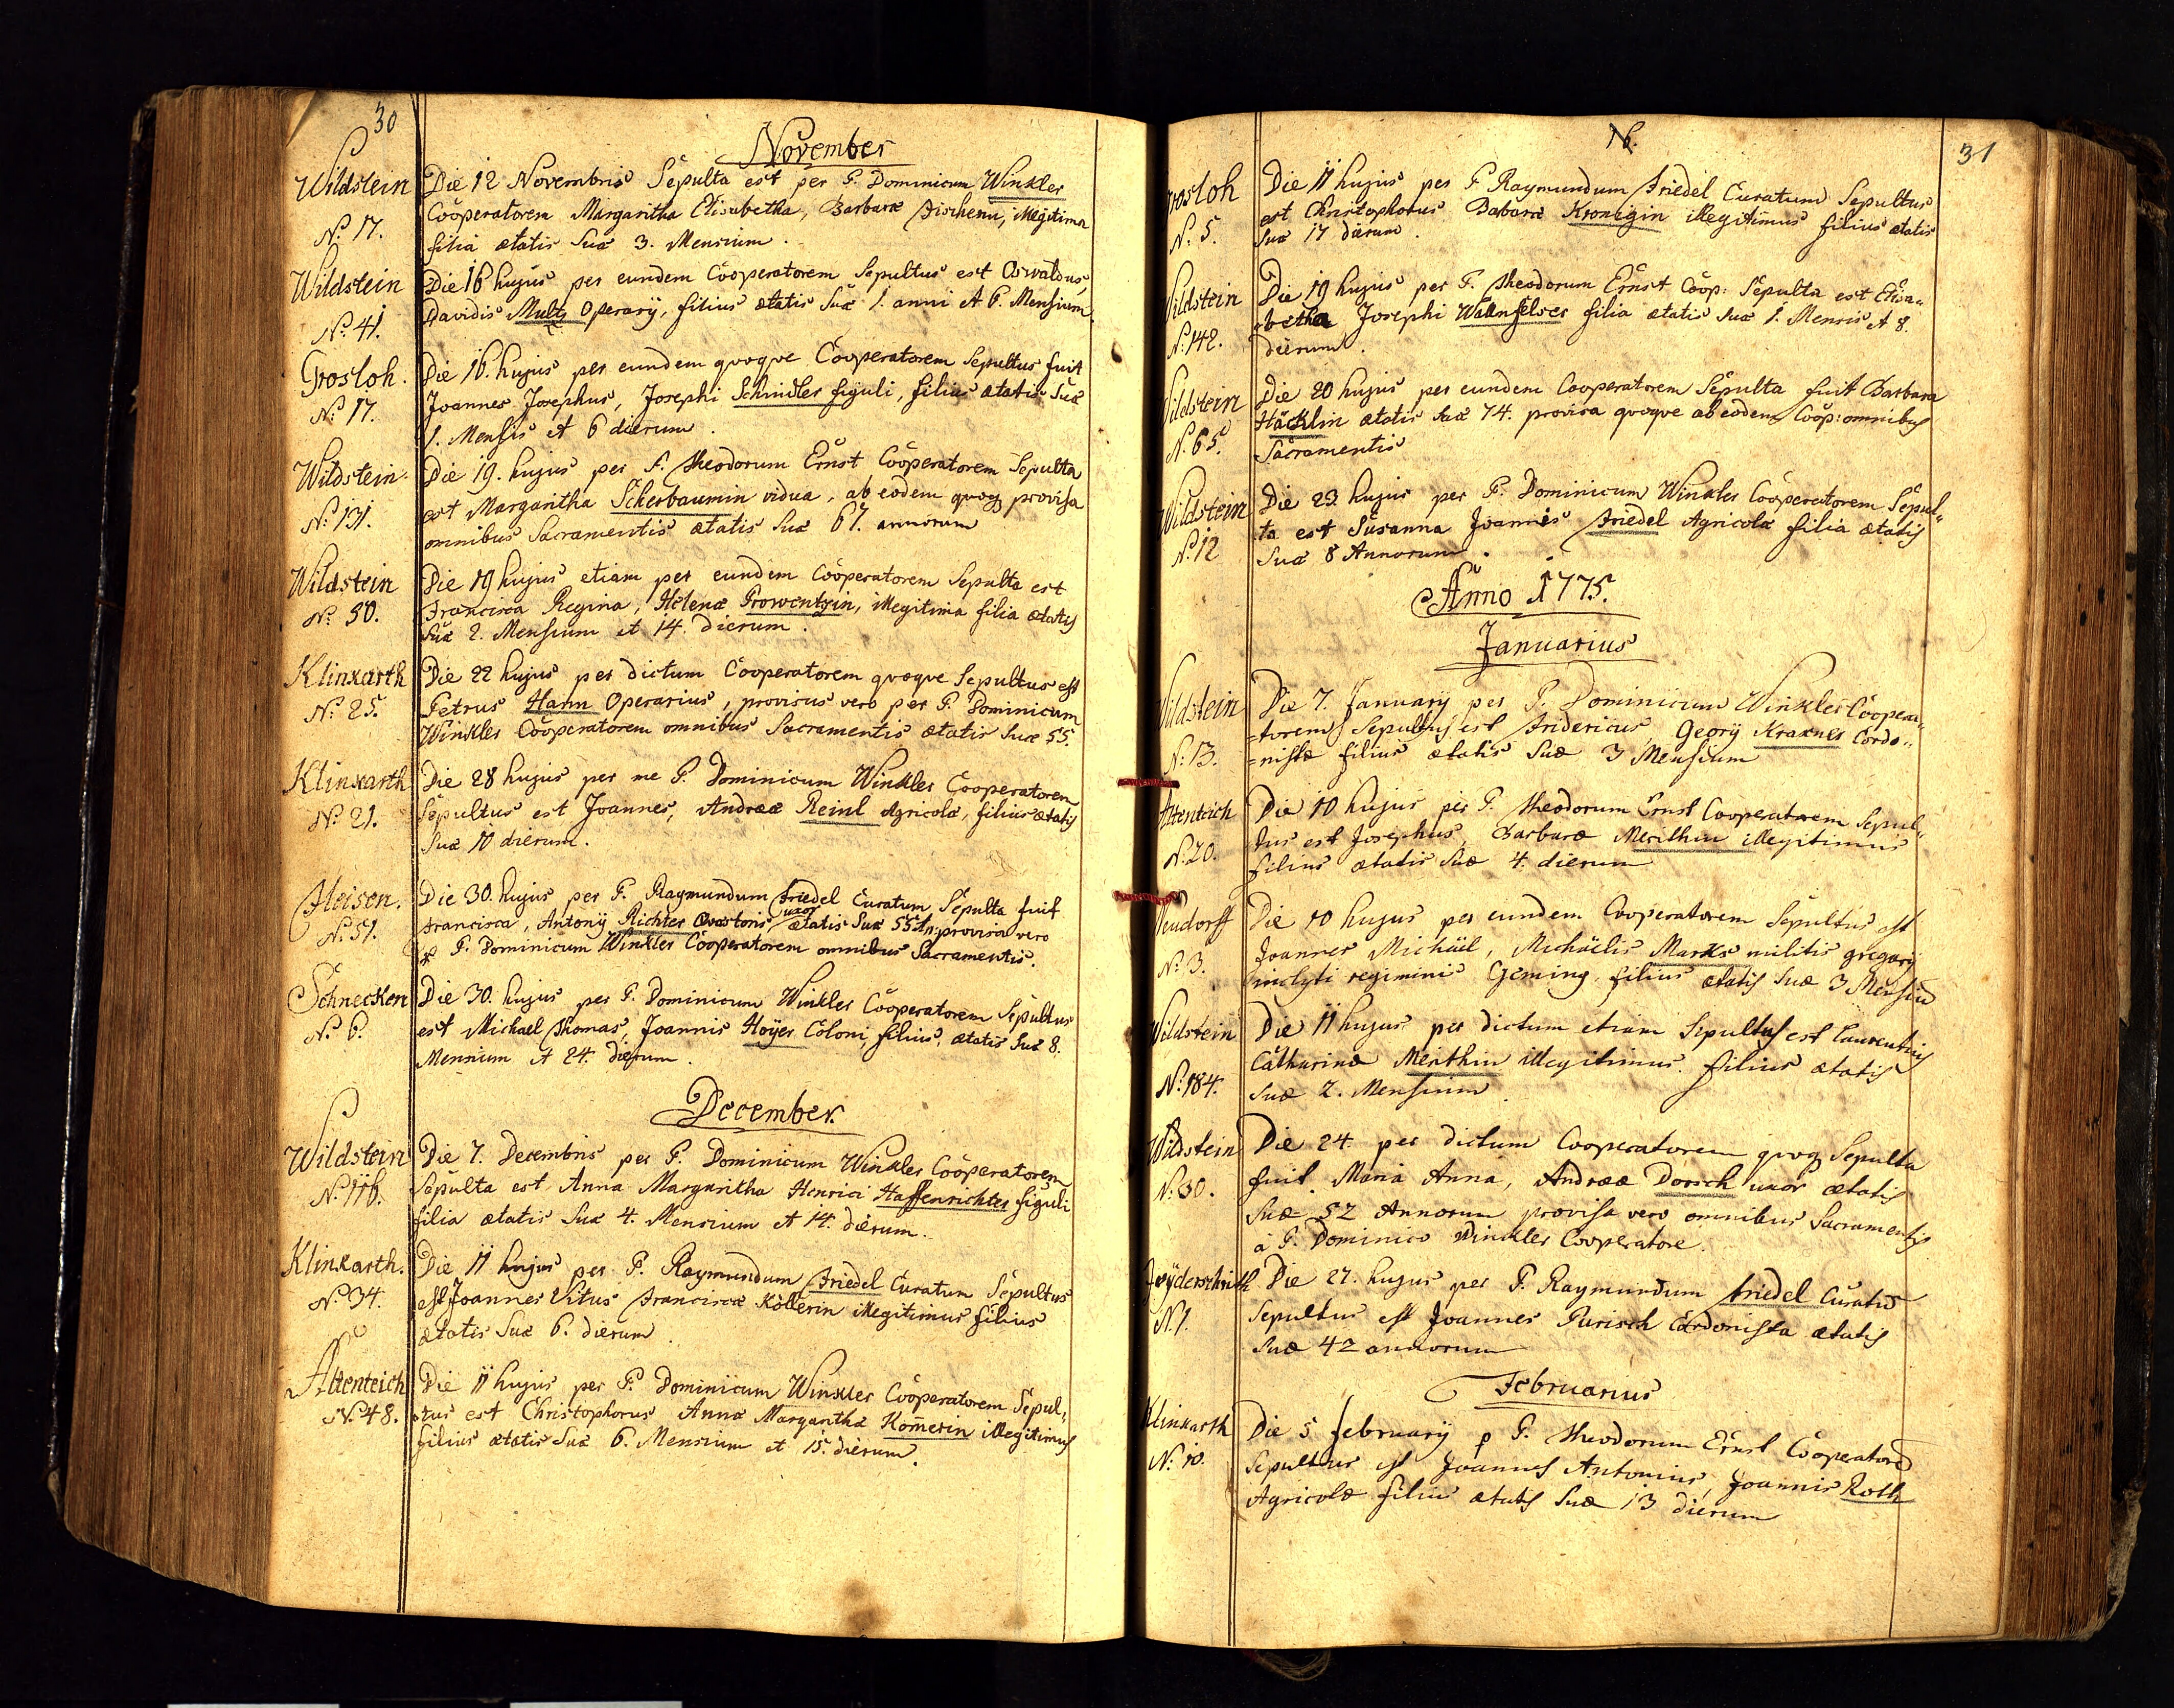 30
November
Wildstein
N: 17.
Die 12 Novembris Sepulta est per P. Dominicum Winkler
Cooperatorem Margaritha Elisabetha, Barbaræ Fischerin, illegitima
filia ætatis suæ 3. Mensium.
Wildstein
N: 41.
Die 16 hujus per eundem Cooperatorem Sepultus est Oswaldus,
Davidis Multz Operarÿ, filius ætatis suæ 1. anni et 6. Mensium.
Grosloh.
N: 17.
Die 16. hujus per eundem quoque Cooperatorem Sepultus fuit
Joannes Josephus, Josephi Schindler figuli, filius ætatis suæ
1. Mensis et 6 dierum.
Wildstein.
N: 131.
Die 19. hujus per P. Theodorum Ernst Cooperatorem Sepulta
est Margaritha Scherbaumin vidua, ab eodem quoq provisa
omnibus Sacramentis ætatis suæ 67. annorum
Wildstein
N: 50.
Die 19 hujus etiam per eundem Cooperatorem Sepulta est
Francisca Regina, Helenæ Prowentzin, illegitima filia ætatis
suæ 2. Mensium et 14. dierum.
Klinxarth
N: 25.
Die 22 hujus per dictum Cooperatorem quoque Sepultus est
Petrus Hann Operarius, provisus vero per P. Dominicum
Winkler Cooperatorem omnibus Sacramentis ætatis suæ 55.
Klinxarth
N: 21.
Die 28 hujus per me P. Dominicum Winkler Cooperatorem
Sepultus est Joannes, Andreæ Reinl Agricolæ, filius ætatis
suæ 10 dierum.
Fleisen.
N: 51.
Die 30. hujus per P. Raymundum Friedel Curatum Sepulta fuit
uxor
Francisca, Antonÿ Richter ætatis suæ 55 An: provisa vero
P. Dominicum Winkler Cooperatorem omnibus Sacramentis.
Schnecken
N: 6.
Die 30. hujus per P. Dominicum Winkler Cooperatorem Sepultus
est Michael Thomas, Joannis Hoÿer Coloni, filius, ætatis suæ 8.
Mensium et 24. dierum.
December.
Wildstein
N: 116.
Die 7. Decembris per P. Dominicum Winkler Cooperatorem
Sepulta est Anna Margaritha Henrici Haffenrichter figuli
filia ætatis suæ 4. Mensium et 14. dierum.
Klinxarth.
N: 34.
Die 11 hujus per P. Raymundum Friedel Curatum Sepultus
est Joannes Vitus Franciscæ Köllerin illegitimus filius
ætatis suæ 6. dierum.
Altenteich
N: 48.
Die 11 hujus per P. Dominicum Winkler Cooperatorem Sepul=
=tus est Christophorus Annæ Margarithæ Kom̃erin illegitimus
filius ætatis suæ 6. Mensium et 15. dierum.
31
Grosloh
N: 5.
Die 11 hujus per P Raymundum Friedel Curatum Sepultus
est Christophorus Babaræ Kronigin illegitimus filius ætatis
suæ 17 dierum.
Wildstein
N: 142.
Die 19 hujus per P. Theodorum Ernst Coop: Sepulta est Elisa=
=betha Josephi Wannfelser filia ætatis suæ 1. Mensis et 8.
dierum.
Wildstein
N: 65.
Die 20 hujus per eundem Cooperatorem Sepulta fuit Barbara
Häcklin ætatis suæ 74. provisa quoque ab eodem Coop: omnibus
Sacramentis
Wildstein
N: 12
Die 23. hujus per P. Dominicum Winkler Cooperatorem Sepul=
ta est Susanna Joannis Friedel Agricolæ filia ætatis
suæ 8 Annorum.
Anno 1775.
Januarius
Wildstein
N: 13.
Die 7. Januarÿ per P. Dominicum Winkler Coopera=
=torem Sepultus est Fridericus, Georÿ Kraxner Cordo=
=nistæ filius ætatis suæ 3 Mensium
Altenteich
N: 20.
Die 10 hujus per P. Theodorum Ernst Cooperatorem Sepul=
tus est Josephus, Barbaræ Merithin illegitimus
filius ætatis suæ 4. dierum
Neudorff
N: 3.
Die 10 hujus per eundem Cooperatorem Sepultus est
Joannes Michäel, Michäelis Marks militis gregarÿ
inclyti regiminis Geming, filius ætatis suæ 3 Mensiu
Wildstein
N: 184.
Die 11 hujus per dictum etiam Sepultus est Laurentius
Catharinæ Merthin illegitimus filius ætatis
suæ 2. Mensium.
Wildstein
N: 30.
Die 24. per dictum Cooperatorem quoq Sepulta
fuit Maria Anna, Andreæ Dorsch uxor ætatis
suæ 52 Annorum provisa vero omnibus Sacramentis
à P. Dominico Winkler Cooperatore.
N: 1.
Die 27. hujus per P. Raymundum Friedel Curatū
Sepultus est Joannes Purisch Cordonista ætatis
suæ 42 annorum
Februarius
Klinxarth
N: 10.
Die 5 februarÿ p P. Theodorum Ernst Cooperatorē
Sepultus est Joannes Antonius, Joannis Roth
Agricolæ filius ætatis suæ 13 dierum